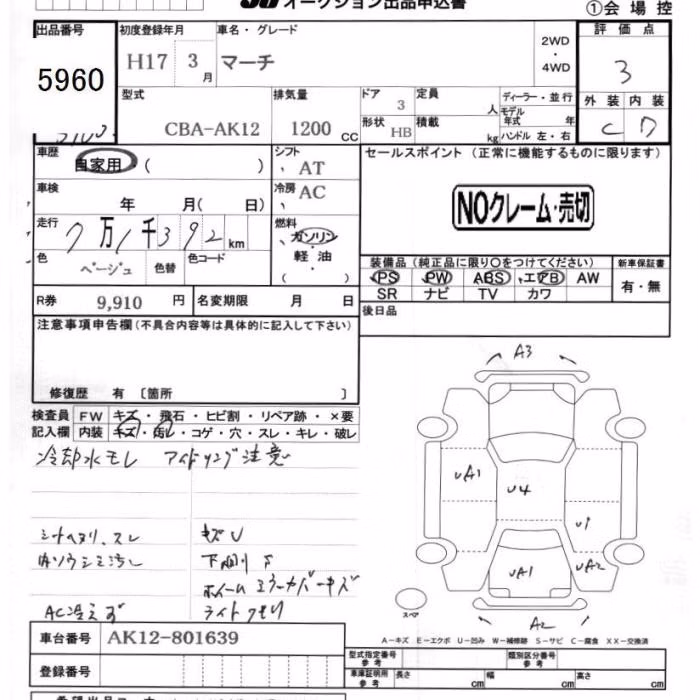 オークション出品申込書
①会場控
出品番号
5960
初度登録年月
H17 3月
車名・グレード
マーチ
2WD
・
4WD
評価点
3
型式
CBA-AK12
排気量
1200 CC
ドア 3
形状 HB
定員 人
積載 kg
ディーラー・並行
モデル年式 年
ハンドル 左・右
外装 内装
C D
車歴
自家用 ( )
シフト AT
車検
年 月( 日)
冷房 AC
走行
7万1千392km
燃料
ガソリン
・
軽油
( )
色
ベージュ
色替
色コード
R券 9,910 円
名変期限 月 日
セールスポイント(正常に機能するものに限ります)
NOクレーム・売切
装備品(純正品に限り○をつけてください)
PS PW ABS エアB AW
SR ナビ TV カワ
新車保証書
有・無
後日品
注意事項申告欄(不具合内容等は具体的に記入して下さい)
修復歴 有 〔箇所 〕
検査員記入欄
FW キズ・飛石・ヒビ割・リペア跡・×要
内装 キズ・汚レ・コゲ・穴・スレ・キレ・破レ
冷却水モレ アイドリング注意
シートヘタリ、スレ
キズU
内ソウシミ汚レ
下廻りサ
ホイール ミラーカバーキズ
AC冷えず
ライトクモリ
A3
UA1
U4
U1
UA1
UA2
A2
スペア
A-キズ E-エクボ U-凹み W-補修跡 S-サビ C-腐食 XX-交換済
車台番号 AK12-801639
登録番号
型式指定番号 参考
類別区分番号 参考
車庫証明用 参考
長さ cm 幅 cm 高さ cm